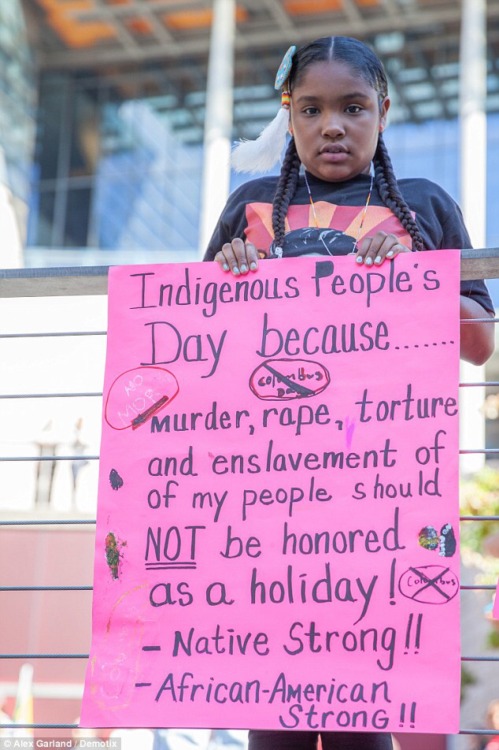 Indigenous People's
Day because.......
NO
Columbus
Day
Murder, rape, torture
and enslavement of
of my people should
NOT be honored
as a holiday!
Columbus
- Native Strong!!
- African-American
Strong!!
© Alex Garland / Demotix